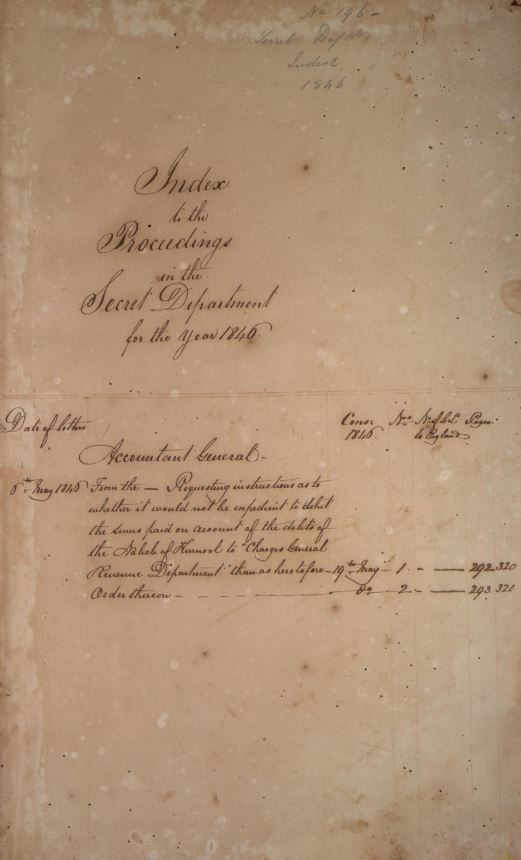 No 196 -
Secret Depart
Index
1846
Index
to the
Proceedings
in the
Secret Department
for the Year 1846.
Date of letters Cons: 1846 Nos. to England Pages
Accountant General -
6th May 1846 From the — Requesting instructions as to
whether it would not be expedient to debit
the sums paid on account of the debts of
the Nabob of Kurnool to "Charges General
Revenue Department" than as heretofore - 19th May - 1 - — 292 320
Order thereon - - - — Do - 2 - — 293 321